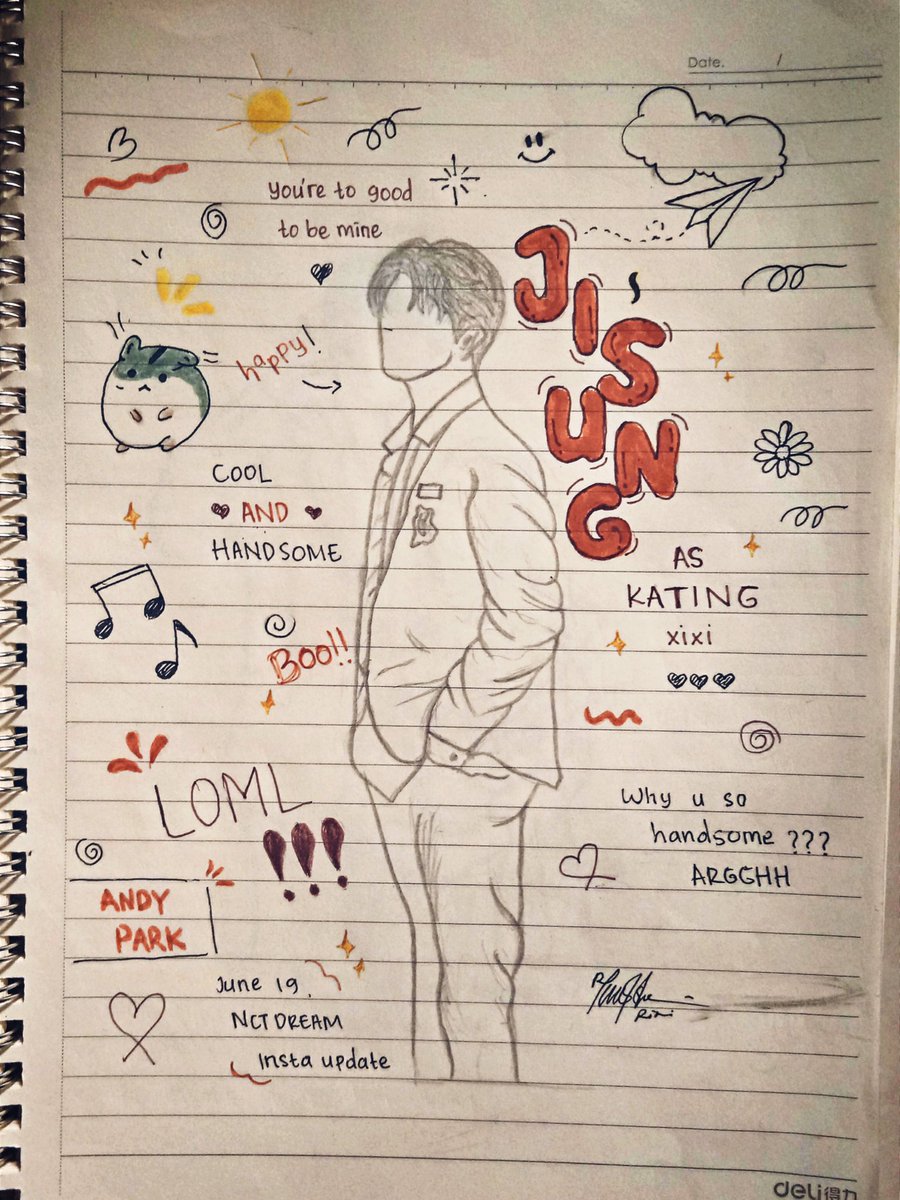 Date. /
you're to good
to be mine
JISUNG's
happy!
COOL
AND
HANDSOME
AS
KATING
xixi
Boo!!
LOML
!!!
Why u so
handsome ???
ARGGHH
ANDY
PARK
June 19
NCT DREAM
Insta update
Rizi
deli得力